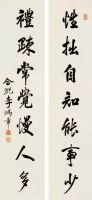 性拙自知能事少
禮疎常覺慢人多
合肥李鴻章